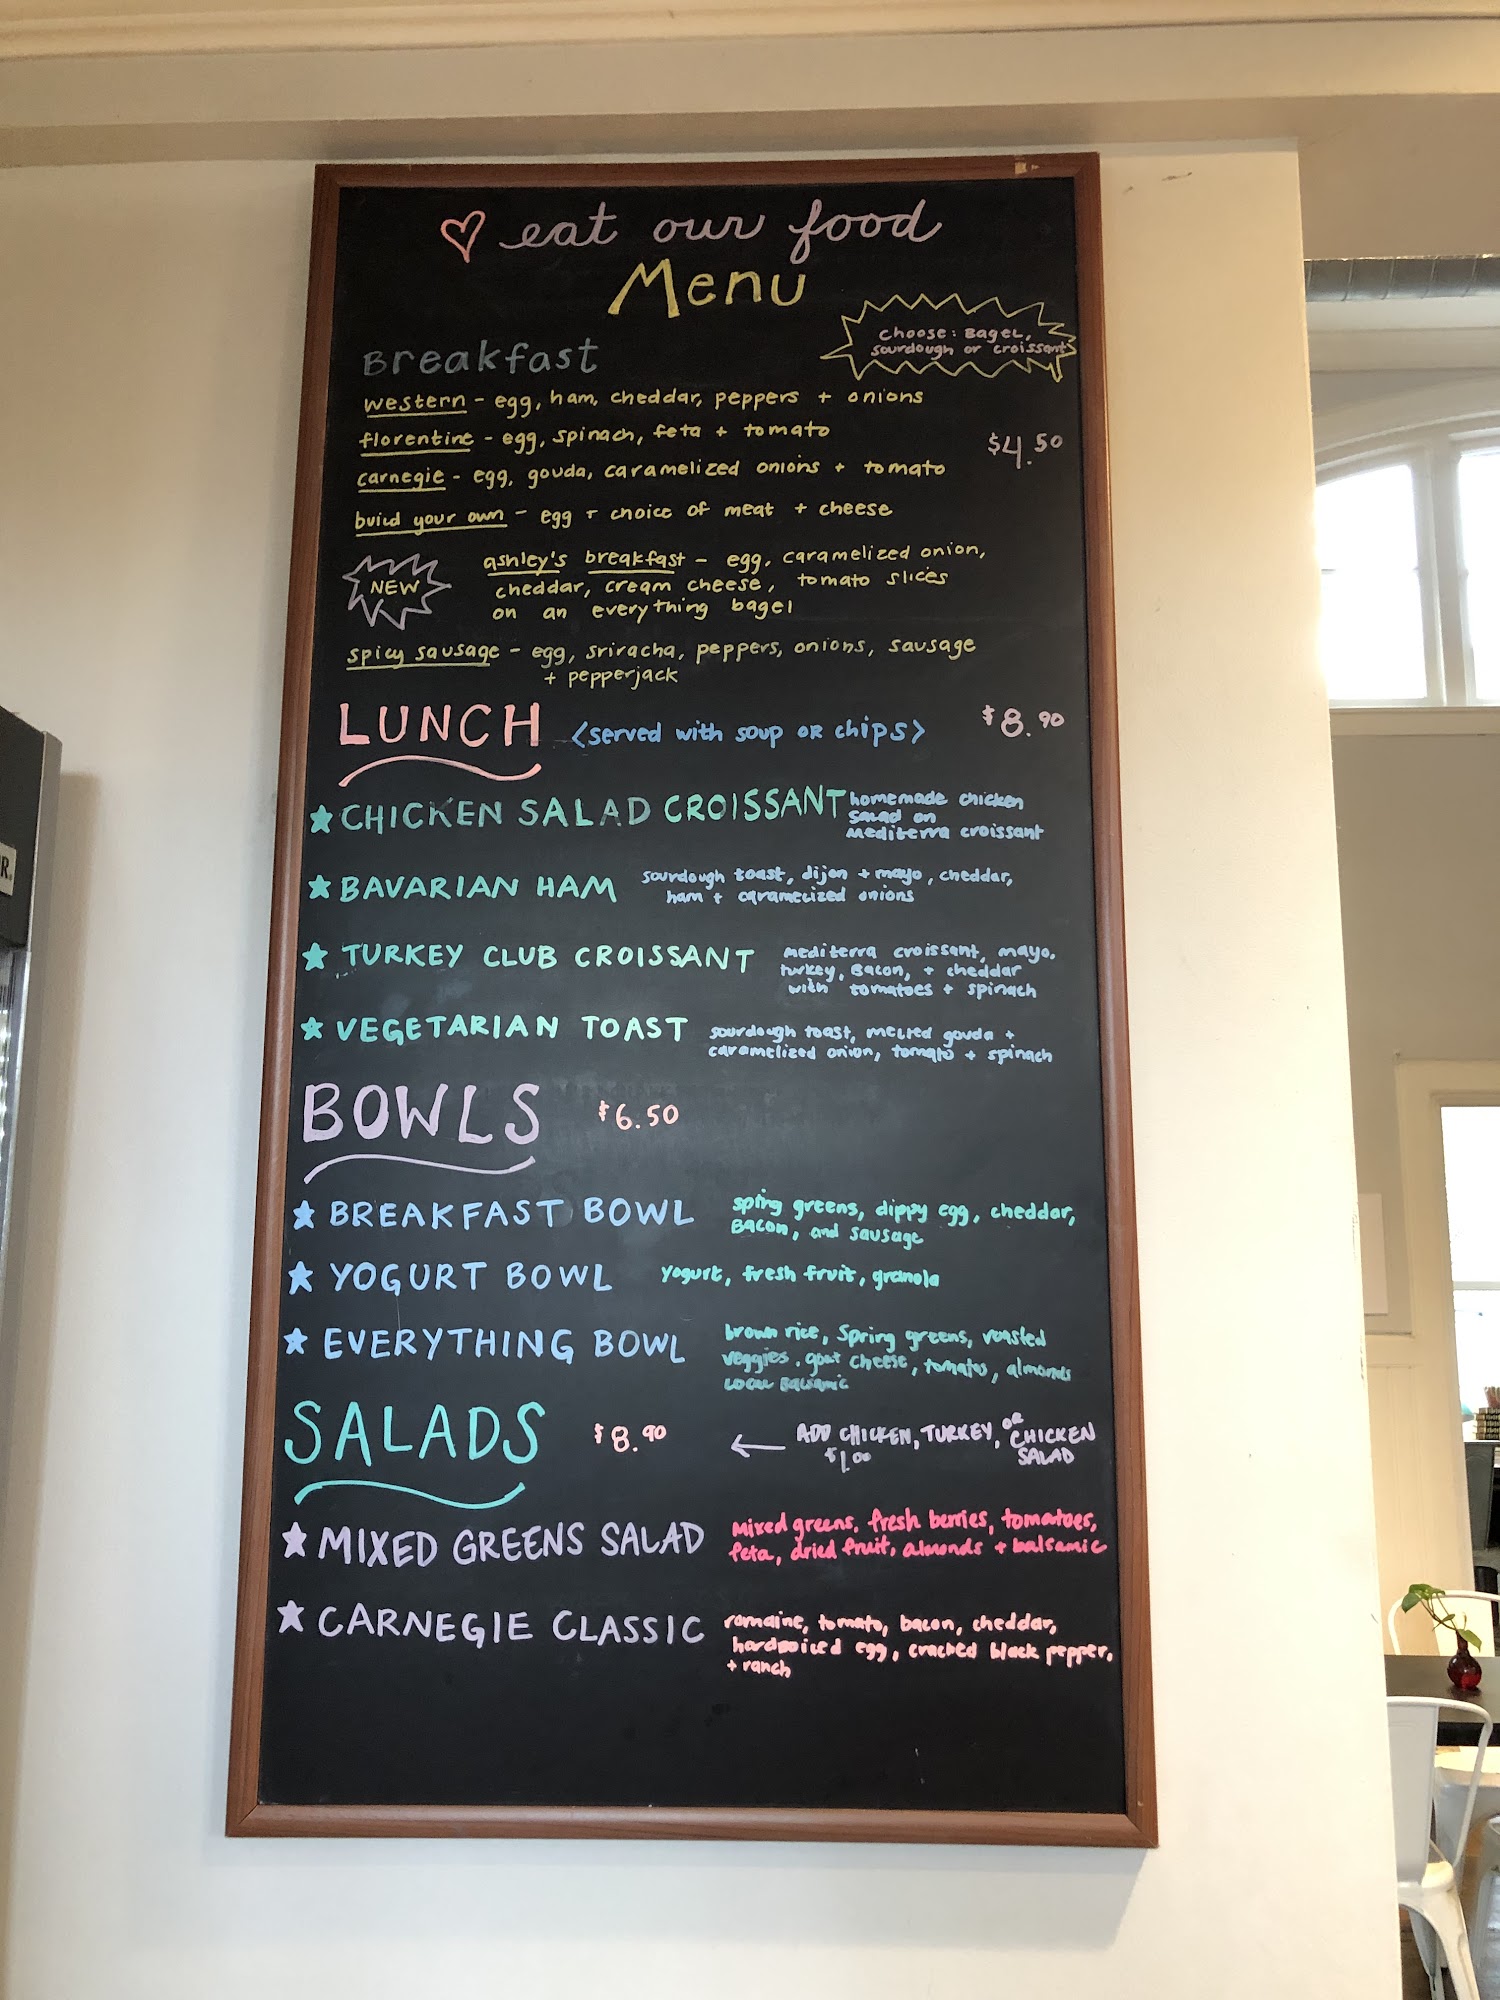 eat our food
Menu
Choose: Bagel,
sourdough or croissant
Breakfast
western - egg, ham, cheddar, peppers + onions
florentine - egg, spinach, feta + tomato
$4.50
carnegie - egg, gouda, caramelized onions + tomato
build your own - egg + choice of meat + cheese
NEW
ashley's breakfast - egg, caramelized onion,
cheddar, cream cheese, tomato slices
on an everything bagel
spicy sausage - egg, sriracha, peppers, onions, sausage
+ pepperjack
LUNCH <served with soup OR chips> $8.90
CHICKEN SALAD CROISSANT homemade chicken
salad on
Mediterra croissant
BAVARIAN HAM sourdough toast, dijon + mayo, cheddar,
ham + caramelized onions
TURKEY CLUB CROISSANT mediterra croissant, mayo,
turkey, Bacon, + cheddar
with tomatoes + spinach
VEGETARIAN TOAST sourdough toast, melted gouda +
caramelized onion, tomato + spinach
BOWLS $6.50
BREAKFAST BOWL spring greens, dippy egg, cheddar,
Bacon, and sausage
YOGURT BOWL yogurt, fresh fruit, granola
EVERYTHING BOWL brown rice, Spring greens, roasted
veggies, goat cheese, tomatos, almonds
Local Balsamic
SALADS $8.90 ADD CHICKEN, TURKEY, OR CHICKEN
$1.00 SALAD
MIXED GREENS SALAD Mixed greens, fresh berries, tomatoes,
feta, dried fruit, almonds + balsamic
CARNEGIE CLASSIC romaine, tomato, bacon, cheddar,
hardboiled egg, cracked black pepper,
+ ranch
R.